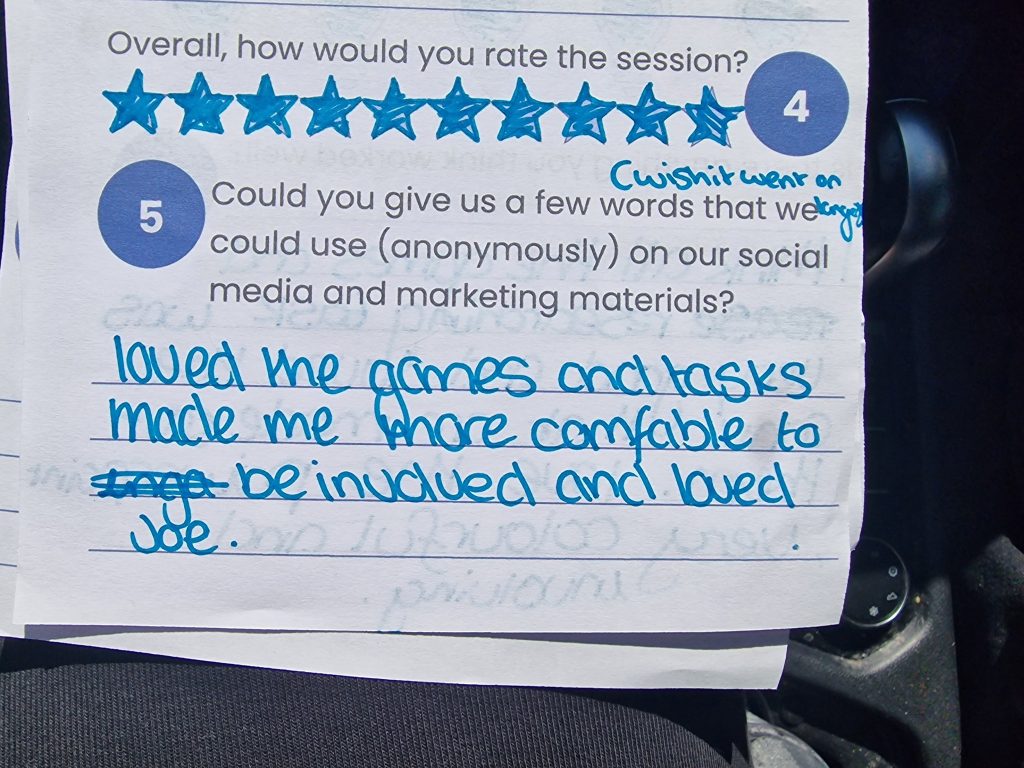 Overall, how would you rate the session?
4
(wish it went on
longer
5
Could you give us a few words that we
could use (anonymously) on our social
media and marketing materials?
loved the games and tasks
made me more comfable to
be involved and loved
Joe.